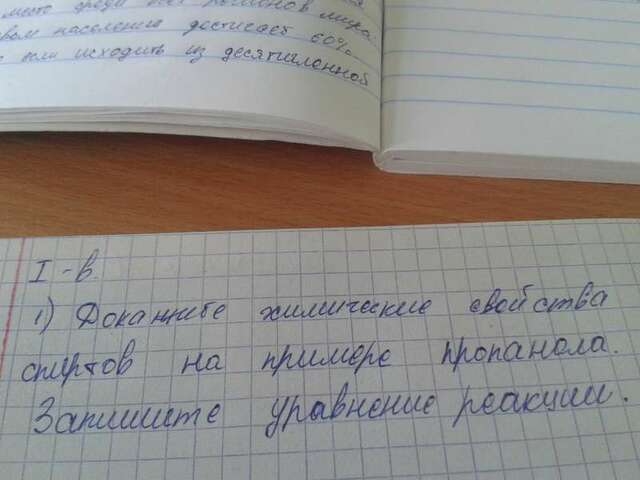 место среди всех регионов мира.
населения достигает 60%.
если исходить из десятичленной
I - в.
1) Докажите химические свойства
спиртов на примере пропанола.
Запишите уравнение реакции.